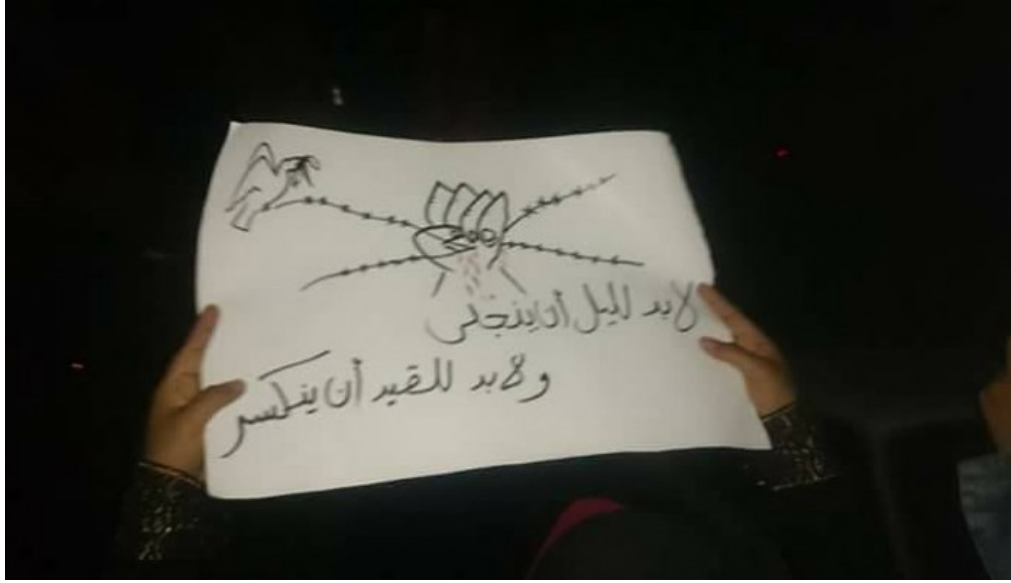 لا بد لليل أن ينجلى
ولا بد للقيد أن ينكسر